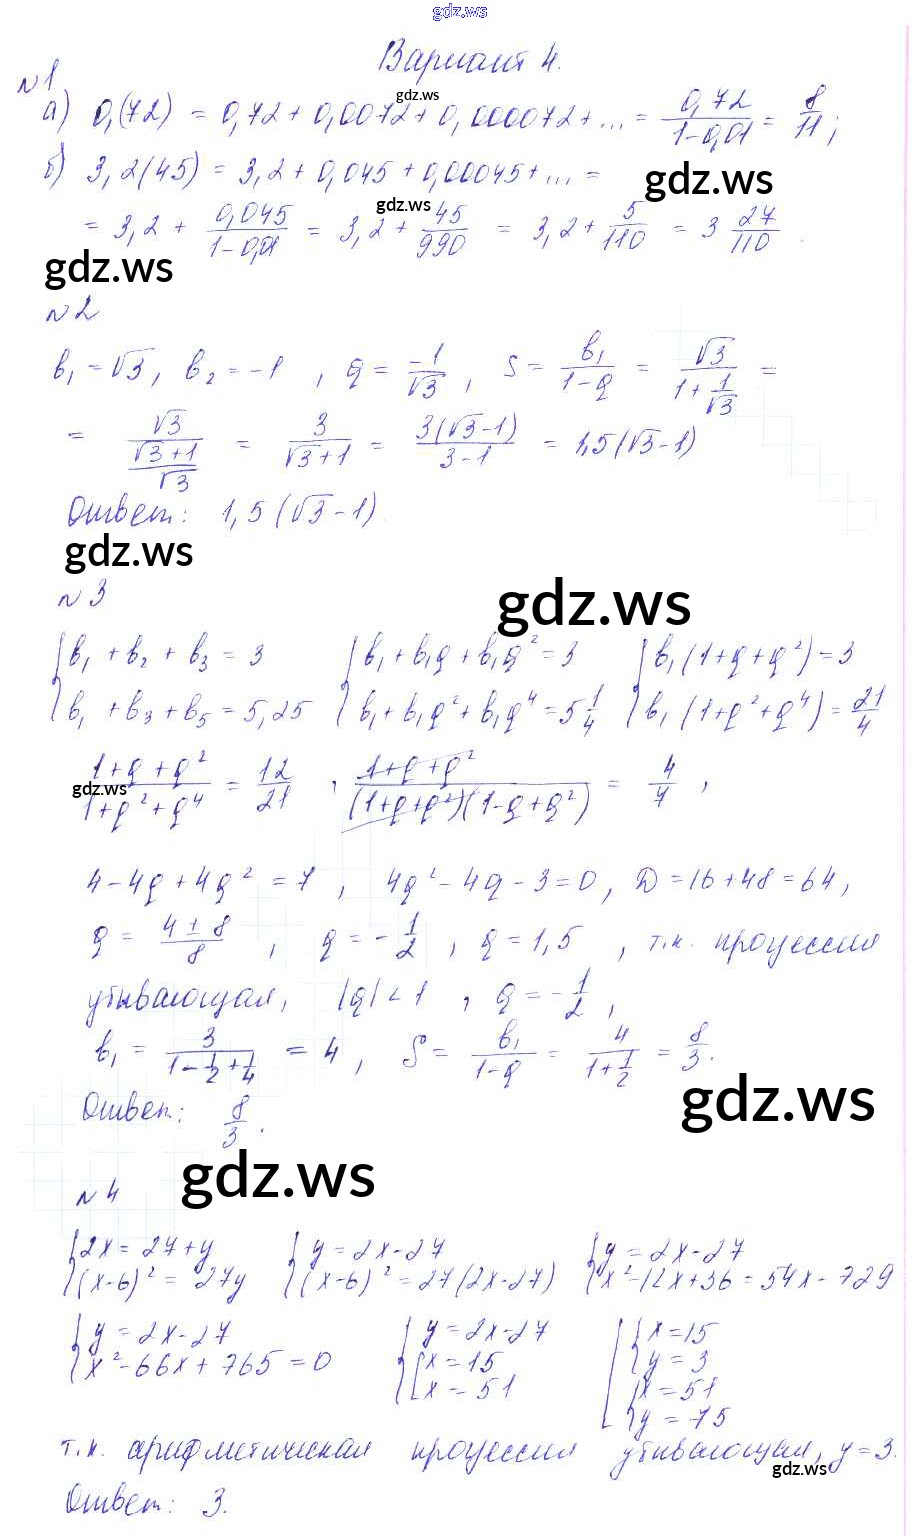 gdz.ws
Вариант 4.
№1
а) 0,(72) = 0,72 + 0,0072 + 0,000072 + ... = 0,72/(1-0,01) = 8/11;
gdz.ws
б) 3,2(45) = 3,2 + 0,045 + 0,00045 + ... =
gdz.ws
= 3,2 + 0,045/(1-0,01) = 3,2 + 45/990 = 3,2 + 5/110 = 3 27/110.
gdz.ws
gdz.ws
№2
в₁ = √3, в₂ = -1, q = -1/√3, S = в₁/(1-q) = √3/(1+1/√3) =
= √3/((√3+1)/√3) = 3/(√3+1) = 3(√3-1)/(3-1) = 1,5(√3-1)
Ответ: 1,5(√3-1).
gdz.ws
№3
gdz.ws
{в₁ + в₂ + в₃ = 3 {в₁ + в₁q + в₁q² = 3 {в₁(1+q+q²) = 3
{в₁ + в₃ + в₅ = 5,25 {в₁ + в₁q² + в₁q⁴ = 5 1/4 {в₁(1+q²+q⁴) = 21/4
(1+q+q²)/(1+q²+q⁴) = 12/21, (1+q+q²)/((1+q+q²)(1-q+q²)) = 4/7,
gdz.ws
4-4q+4q² = 7, 4q²-4q-3=0, D=16+48=64,
q = (4±8)/8, q = -1/2, q = 1,5, т.к. процессия
убывающая, |q|<1, q = -1/2,
в₁ = 3/(1-1/2+1/4) = 4, S = в₁/(1-q) = 4/(1+1/2) = 8/3.
Ответ: 8/3.
gdz.ws
gdz.ws
№4
{2x = 27+y {y = 2x-27 {y = 2x-27
{(x-6)² = 27y {(x-6)² = 27(2x-27) {x²-12x+36 = 54x-729
{y = 2x-27 {y = 2x-27 [{x=15
{x²-66x+765=0 {[x=15 {y=3
[x=51 {x=51
{y=75
т.к. арифметическая процессия убывающая, y=3.
gdz.ws
Ответ: 3.